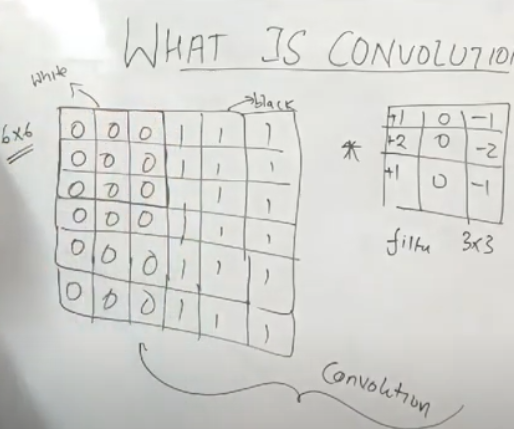 WHAT IS CONVOLUTION
White
black
6x6
0 0 0 1 1 1
0 0 0 1 1 1
0 0 0 1 1 1
0 0 0 1 1 1
0 0 0 1 1 1
0 0 0 1 1 1
*
+1 0 -1
+2 0 -2
+1 0 -1
filtu 3x3
Convolution